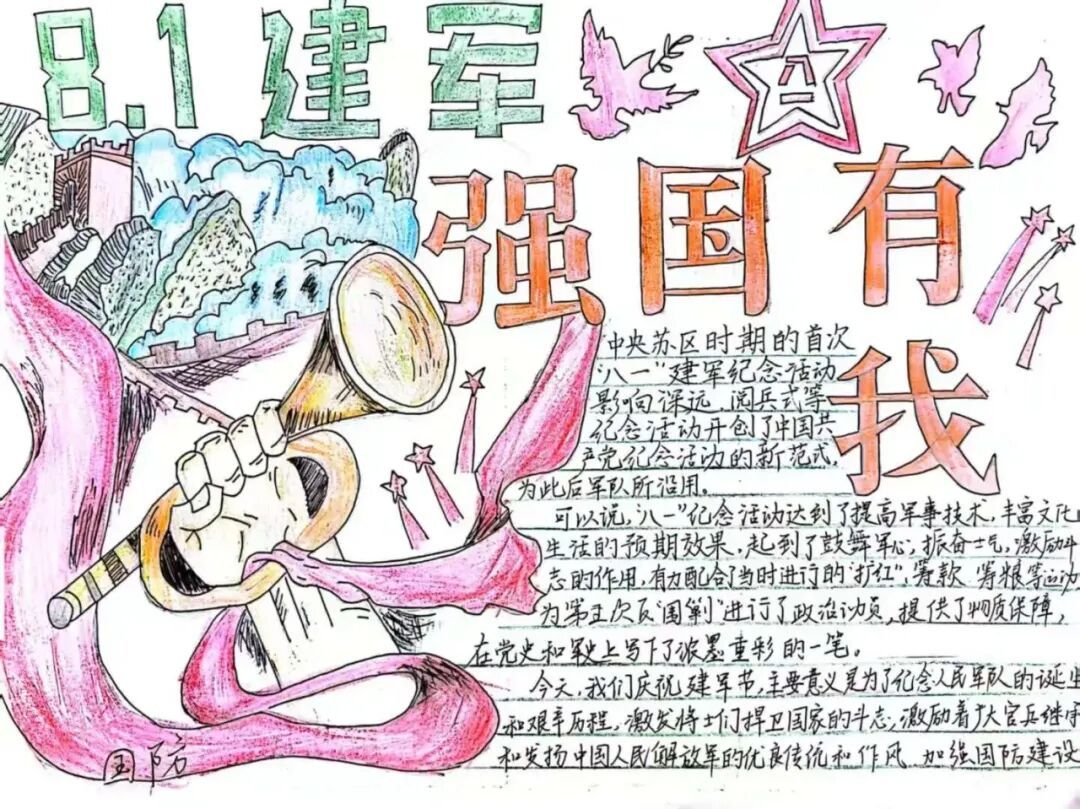 8.1建军
八一
强国有
我
中央苏区时期的首次
"八一"建军纪念活动
影响深远,阅兵式等
纪念活动开创了中国共
产党纪念活动的新范式,
为此后军队所沿用。
可以说,"八一"纪念活动达到了提高军事技术,丰富文化
生活的预期效果,起到了鼓舞军心,振奋士气,激励斗
志的作用,有力配合了当时进行的"扩红",筹款 筹粮等运动,
为第五次反"围剿"进行了政治动员,提供了物质保障,
在党史和军史上写下了浓墨重彩的一笔。
今天,我们庆祝建军节,主要意义是为了纪念人民军队的诞生
和艰辛历程,激发将士们捍卫国家的斗志,激励着广大官兵继承
和发扬中国人民解放军的优良传统和作风 加强国防建设
国防